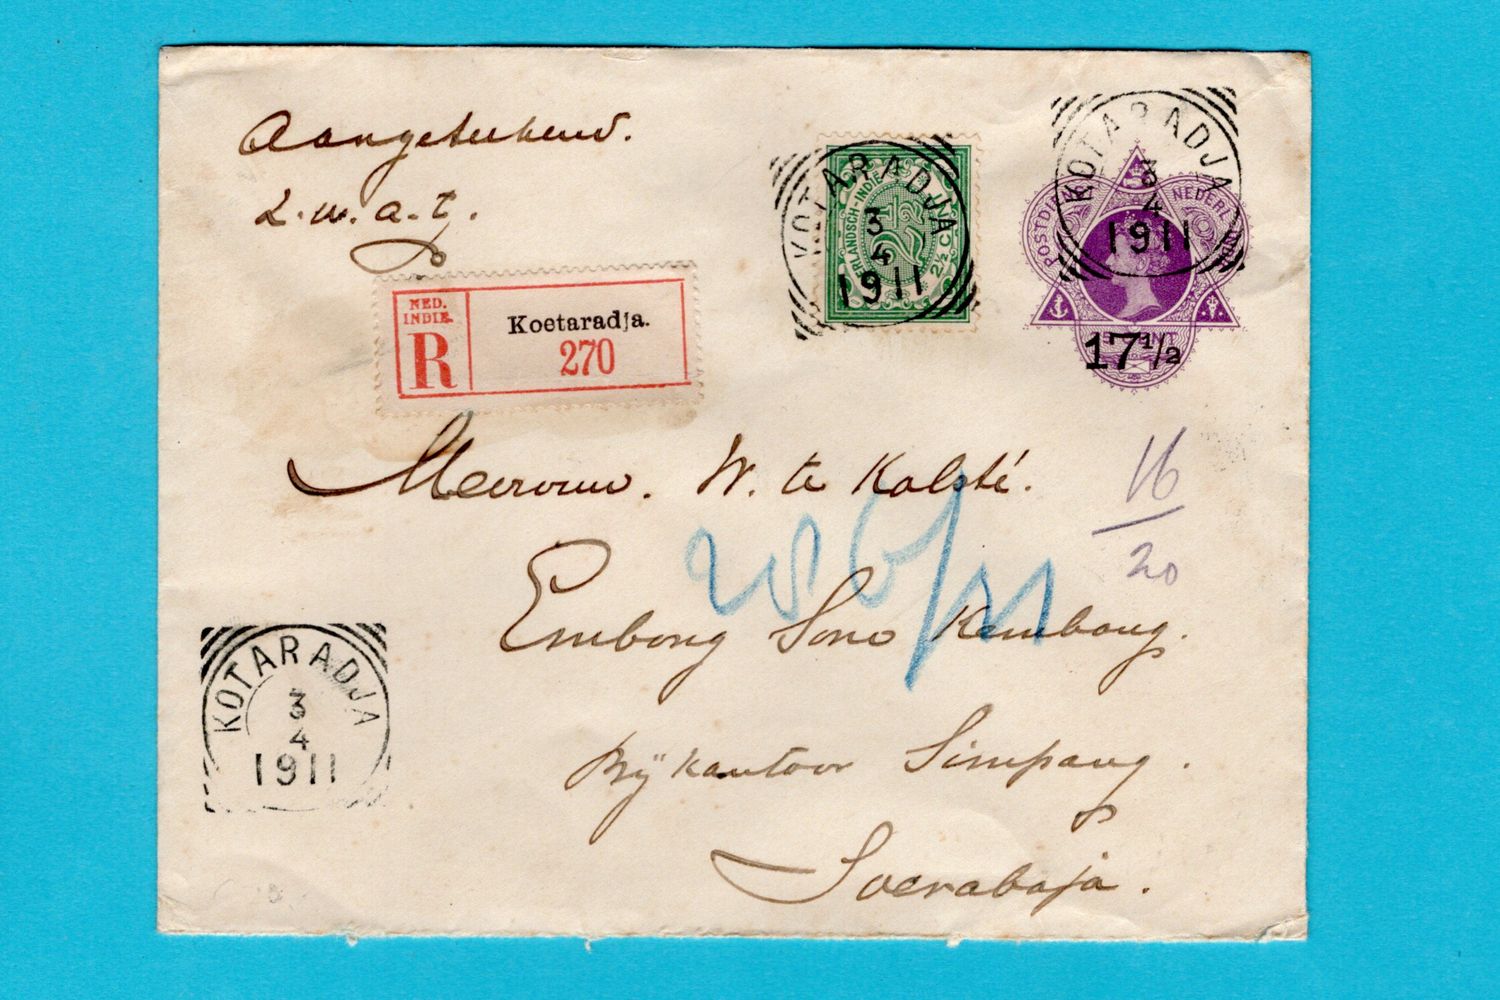 Aangeteekend.
L.w.a.t.
NED.
INDIË.
R
Koetaradja.
270
KOTARADJA
3
4
1911
NEDERLANDSCH-INDIE
2½ C
KOTARADJA
3
4
1911
POSTDI
NEDERL
17 1/2
Mevrouw. W. te Kolsté.
16
20
Embong Sono Kembang.
Bijkantoor Simpang.
Soerabaja.
KOTARADJA
3
4
1911